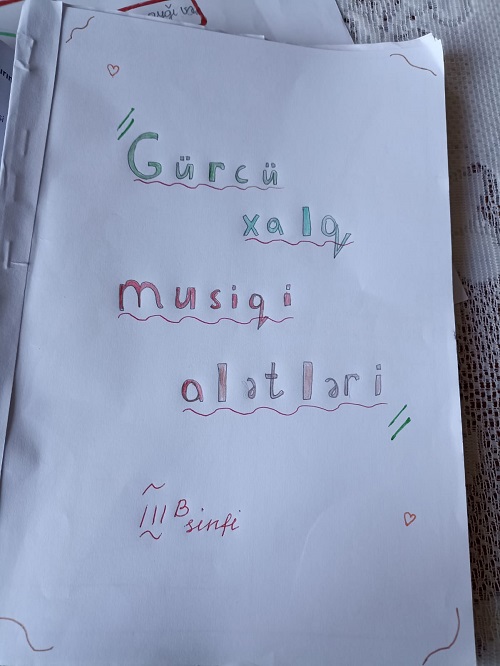 "Gürcü
xalq
musiqi
alətləri"
III B sinfi